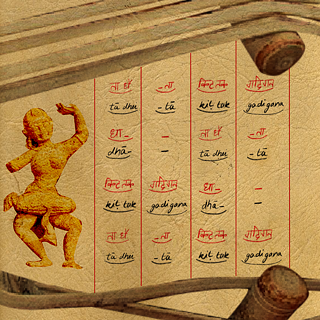 ता धे -ता किटतक गदिगन
tā dhe - tā kit tak gadigana
धा - - ता धे -ता
dhā - - tā dhe - tā
किटतक गदिगन धा - -
kit tak gadigana dhā - -
ता धे -ता किटतक गदिगन
tā dhe - tā kit tak gadigana